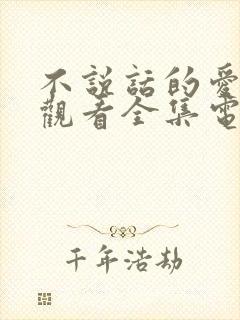 不說話的愛
觀看全集電
千年浩劫